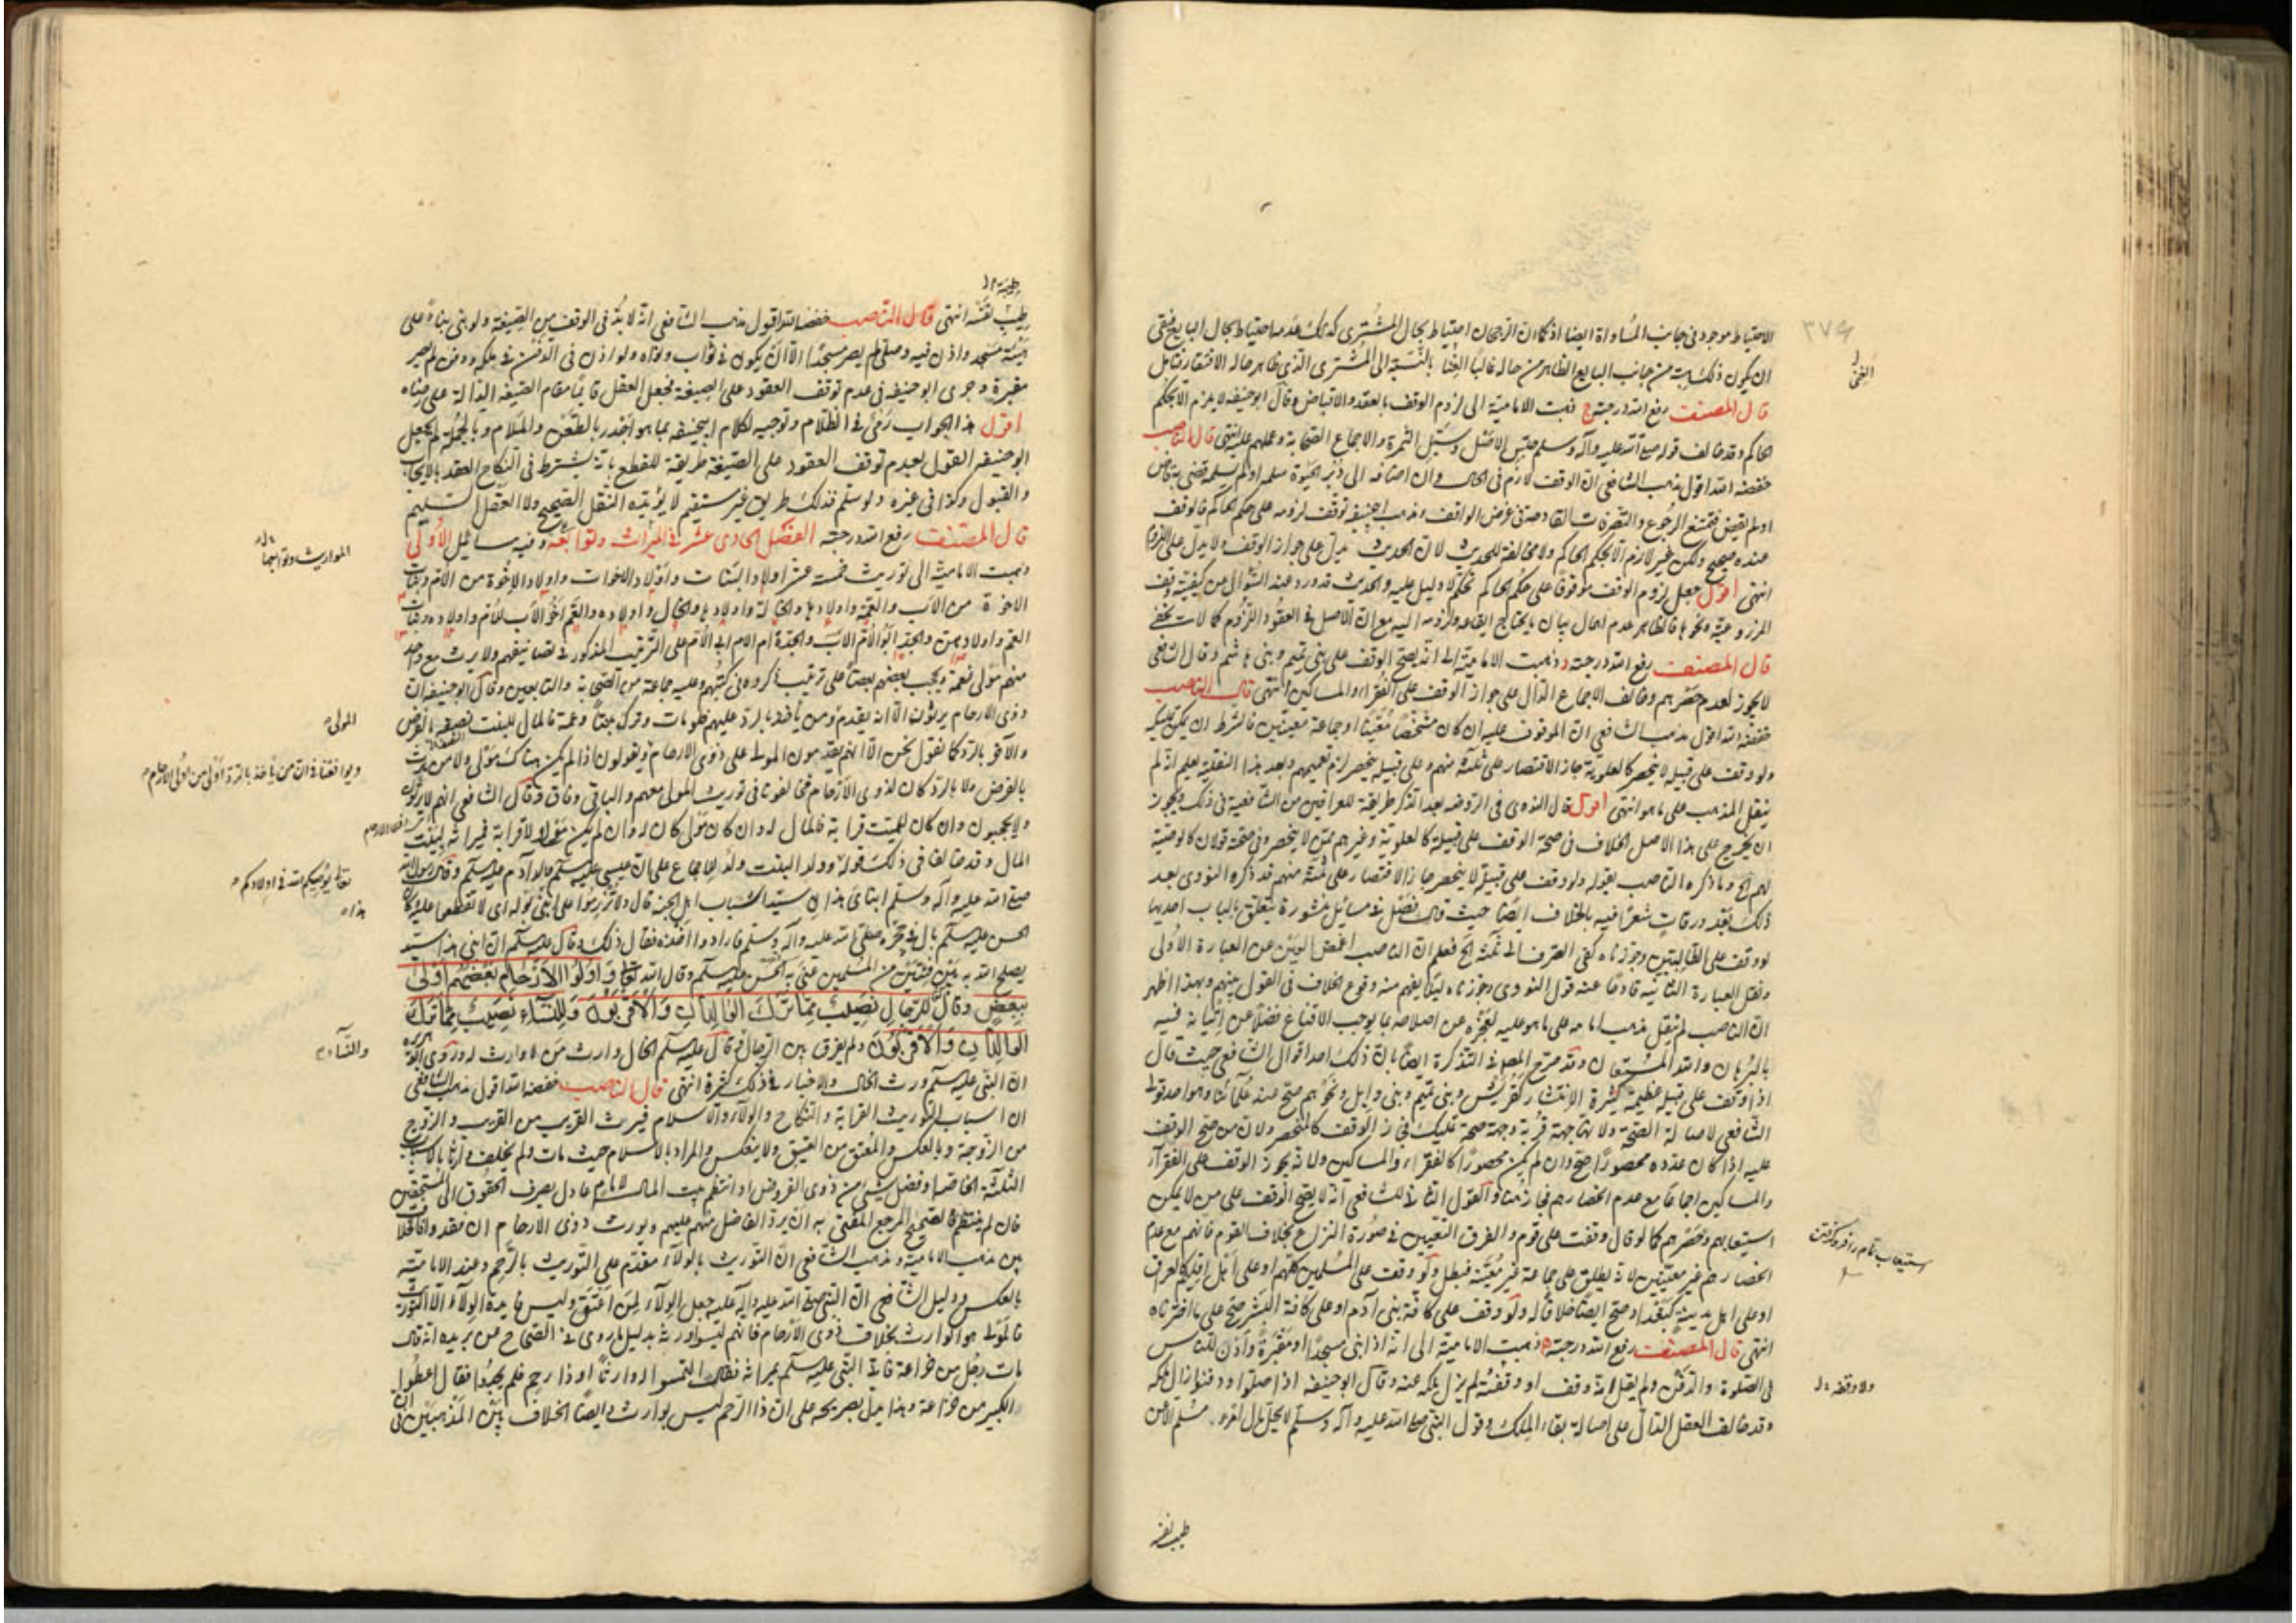 الاحتياط موجود فى جانب المساواة ايضا اذ كما ان الرجحان احتياط بحال المشترى كذلك عدمه احتياط بحال البايع فبقى
ان يكون ذلك من جانب البايع الظاهر من حاله غالبا الغنا بالنسبة الى المشترى الذى ظاهر حاله الافتقار فتامل
قال المصنف رفع الله درجته ج ذهبت الامامية الى لزوم الوقف بالعقد والاقباض وقال ابو حنيفه لا يلزم الا بحكم
الحاكم وقد خالف قوله صلى الله عليه وآله وسلم حبس الاصل وسبل الثمرة والاجماع الصحابة وعملهم عليه انتهى قال الناصب
خفضه الله اقول مذهب الشافعى ان الوقف لازم فى الحال وان اضافه الى الحيوة سلمه او لم يسلمه قضى به قاض
او لم يقض فيمتنع الرجوع والتصرفات القادحة فى غرض الواقف ومذهب ابيحنيفه توقف لزومه على حكم الحاكم فالوقف
عنده صحيح ولكن غير لازم الا بحكم الحاكم ولا مخالفة للحديث لان الحديث يدل على جواز الوقف ولا يدل على اللزوم
انتهى اقول جعل لزوم الوقف موقوفا على حكم الحاكم تحكم لا دليل عليه والحديث قد ورد عند السؤال من كيفية وقف
قال المصنف رفع الله درجته د ذهبت الامامية الى انه يصح الوقف على بنى تميم وبنى هاشم وقال الشافعى
لا يجوز لعدم حصرهم وخالف الاجماع الدال على جواز الوقف على الفقراء والمساكين انتهى قال الناصب
خفضه الله اقول مذهب الشافعى ان الموقوف عليه ان كان مشخصا معينا او جماعة معينين فالشرط ان يمكن تمليكه
ولو وقف على قبيلة لا تنحصر كالعلوية جاز الاقتصار على ثلثة منهم وعلى قبيلة تنحصر لزم تعميمهم وبعد هذا التقدير يعلم انه لم
ينقل المذهب على ما هو انتهى اقول قال النووى فى الروضه بعد ذكر طريقة للعراقيين من الشافعية فى ذلك ويجوز
ان يخرج على هذا الاصل الخلاف فى صحة الوقف على قبيلة كالعلوية وغيرهم ممن لا ينحصر وفى صحته قولان كالوصية
لهم الخ وما ذكره الناصب بقوله ولو وقف على قبيلة لا تنحصر جاز الاقتصار على ثلثة منهم قد ذكره النووى بعد
ذلك بعد ورقات مشعرا فيه بالخلاف ايضا حيث قال فصل فى مسائل منثورة تتعلق بالباب احديها
لو وقف على الطالبيين وجوزناه كفى الصرف الى ثلثة الخ فعلم ان الناصب اغمض العين عن العبارة الاولى
ونقل العبارة الثانية حاذفا عنه قول النووى وجوزناه لئلا يفهم منه وقوع الخلاف فى القول بينهم وبهذا اظهر
ان الناصب لم ينقل مذهب امامه على ما هو عليه لعجزه عن اصلاحه بما يوجب الاقناع فضلا عن اتيانه فيه
بالبرهان والله المستعان وقد صرح المص فى التذكرة ايضا بان ذلك احد اقوال الشافعى حيث قال
اذا وقف على قبيلة عظيمة كثيرة الانتشار كقريش وبنى تميم وبنى وايل ونحوهم صح عند علمائنا وهو احد قولى
الشافعى لاصالة الصحة ولانها جهة قربة وجهة صحة تمليك فجاز الوقف كالمنحصر ولان من صح الوقف
عليه اذا كان عدده محصورا صح وان لم يكن محصورا كالفقراء والمساكين ولانه يجوز الوقف على الفقراء
والمساكين اجماعا مع عدم انحصارهم فجاز هنا والقول الثانى للشافعى انه لا يصح الوقف على من لا يمكن
استيعابهم وحصرهم كما لو قال وقفت على قوم والفرق التعيين فى صورة النزاع بخلاف القوم فانهم مع عدم
انحصارهم غير معينين لانه يطلق على جماعة غير معينة فبطل ولو وقف على المسلمين كلهم او على اهل اقليم كالعراق
او على اهل مدينة كبغداد صح ايضا خلافا له ولو وقف على كافة بنى آدم او على كافة البشر صح على ما اخترناه
انتهى قال المصنف رفع الله درجته ه ذهبت الامامية الى انه اذا بنى مسجدا او مقبرة واذن للناس
فى الصلوة والدفن ولم يقل انه وقف او وقفته لم يزل ملكه عنه وقال ابو حنيفه اذا صلوا ودفنوا زال ملكه
وقد خالف العقل الدال على اصالة بقاء الملك وقول النبى صلى الله عليه وآله وسلم لا يحل مال امرء مسلم الا عن
طيب نفسه
استيعاب تمام را فرو گرفتن
طيب نفسه انتهى قال الناصب خفضه الله اقول مذهب الشافعى انه لا بد فى الوقف من الصيغة ولو بنى بناء على
هيئة مسجد واذن فيه وصلى لم يصر مسجدا الا ان يكون فى ولو اذن فى الدفن فى ملكه ودفن لم يصر
مقبرة وجرى ابو حنيفه فى عدم توقف العقود على الصيغة فجعل الفعل قايما مقام الصيغة الدالة على رضاه
اقول هذا الجواب رمى فى الظلام وتوجيه لكلام ابيحنيفه بما هو اجدر بالطعن والملام وبالجملة لم يجعل
ابو حنيفه القول بعدم توقف العقود على الصيغة طريقة للقطع بانه يشترط فى النكاح العقد بالايجاب
والقبول وكذا فى غيره ولو سلم فذلك طريق غير مستقيم لا يؤيده النقل الصحيح ولا العقل السليم
قال المصنف رفع الله درجته الفصل الحادى عشر فى الميراث وتوابعه وفيه مسائل الاولى
ذهبت الامامية الى توريث خمسة عشر اولاد البنات واولاد الاخوات واولاد الاخوة من الام وبنات
الاخوة من الاب والعمة واولادها والخالة واولادها والخال واولاده والعم اخو الاب للام واولاده وبنات
العم واولادهن والجد ابو الام والجدة ام ابى الام على الترتيب المذكور فى تصانيفهم ولا يرث مع واحد
منهم مولى نعمة ويحجب بعضهم بعضا على ترتيب ذكروه فى كتبهم وعليه جماعة من الصحابة والتابعين وقال ابو حنيفه ان
ذوى الارحام يرثون الا انه يقدم ومن ياخذ بالرد عليهم فلو مات وترك بنتا وعمة فالمال للبنت نصفه بالفرض
والآخر بالرد كما نقول نحن الا انهم يقدمون المولى على ذوى الارحام ويقولون اذا لم يكن هناك مولى ولا من يرث
بالفرض ولا بالرد كان لذوى الارحام فخالفونا فى توريث المولى معهم والباقى وفاق وقال الشافعى انهم لا يرثون
ولا يحجبون وان كان للميت قرابة فالمال له وان كان مولى كان له وان لم يكن مولى ولا قرابة فميراثه لبيت
المال وقد خالفا فى ذلك قوله وولد البنت ولد للاجماع على ان عيسى عليه السلم ولد آدم عليه السلم وقال رسول الله
صلى الله عليه وآله وسلم ابناى هذان سيدا شباب اهل الجنة قال ولا تزرموا على ابنى بوله اى لا تقطعوا عليه وكان
الحسن عليه السلم بال فى حجره صلى الله عليه وآله وسلم فارادوا اخذه فقال ذلك وقال عليه السلم ان ابنى هذا سيد
يصلح الله به بين فئتين من المسلمين عنى به الحسن عليه السلم وقال الله تعالى وَاُولُوا الاَرْحَامِ بَعْضُهُمْ اَوْلىٰ
بِبَعْضٍ وقال لِلرِّجَالِ نَصِيبٌ مِمَّا تَرَكَ الوَالِدَانِ وَالاَقْرَبُونَ وَلِلنِّسَاءِ نَصِيبٌ مِمَّا تَرَكَ
الوَالِدَانِ وَالاَقْرَبُونَ ولم يفرق بين الرجال وقال عليه السلم الخال وارث من لا وارث له وروى
ان النبى عليه السلم ورث الخال والاخبار فى ذلك كثيرة انتهى قال الناصب خفضه الله اقول مذهب الشافعى
ان اسباب التوريث القرابة والنكاح والولاء والاسلام فيرث القريب من القريب والزوج
من الزوجة وبالعكس والمعتق من العتيق ولا ينعكس والمراد بالاسلام حيث مات ولم يخلف وارثا بالاسباب
الثلثة الخاصة او فضل شىء من ذوى الفروض اذا انتظم بيت المال لامام عادل يصرف الحقوق الى المستحقين
فان لم ينتظم فالصحيح المرجح المفتى به ان يرد الفاضل منهم عليهم ويورث ذوى الارحام ان فقدوا فالخلاف
بين مذهب الامامية ومذهب الشافعى ان التوريث بالولاء مقدم على التوريث بالرحم وعند الامامية
بالعكس ودليل الشافعى ان النبى صلى الله عليه وآله جعل الولاء لمن اعتق وليس فايدة الولاء الا التوريث
فالمولى هو الوارث بخلاف ذوى الارحام فانهم ليسوا ورثة بدليل ما روى فى الصحاح عن بريده انه قال
مات رجل من خزاعة فاتى النبى عليه السلم بميراثه فقال التمسوا له وارثا او ذا رحم فلم يجدوا فقال اعطوا
الكبير من خزاعة وهذا يدل بصريحه على ان ذا الرحم ليس بوارث وايضا الخلاف بين المذهبين فى
المواريث وتوابعها
المولى
ويوافقنا فى ان من ياخذ بالرد اولى من اولى الارحام
تعالى يوصيكم الله فى اولادكم
هذا
والنساء